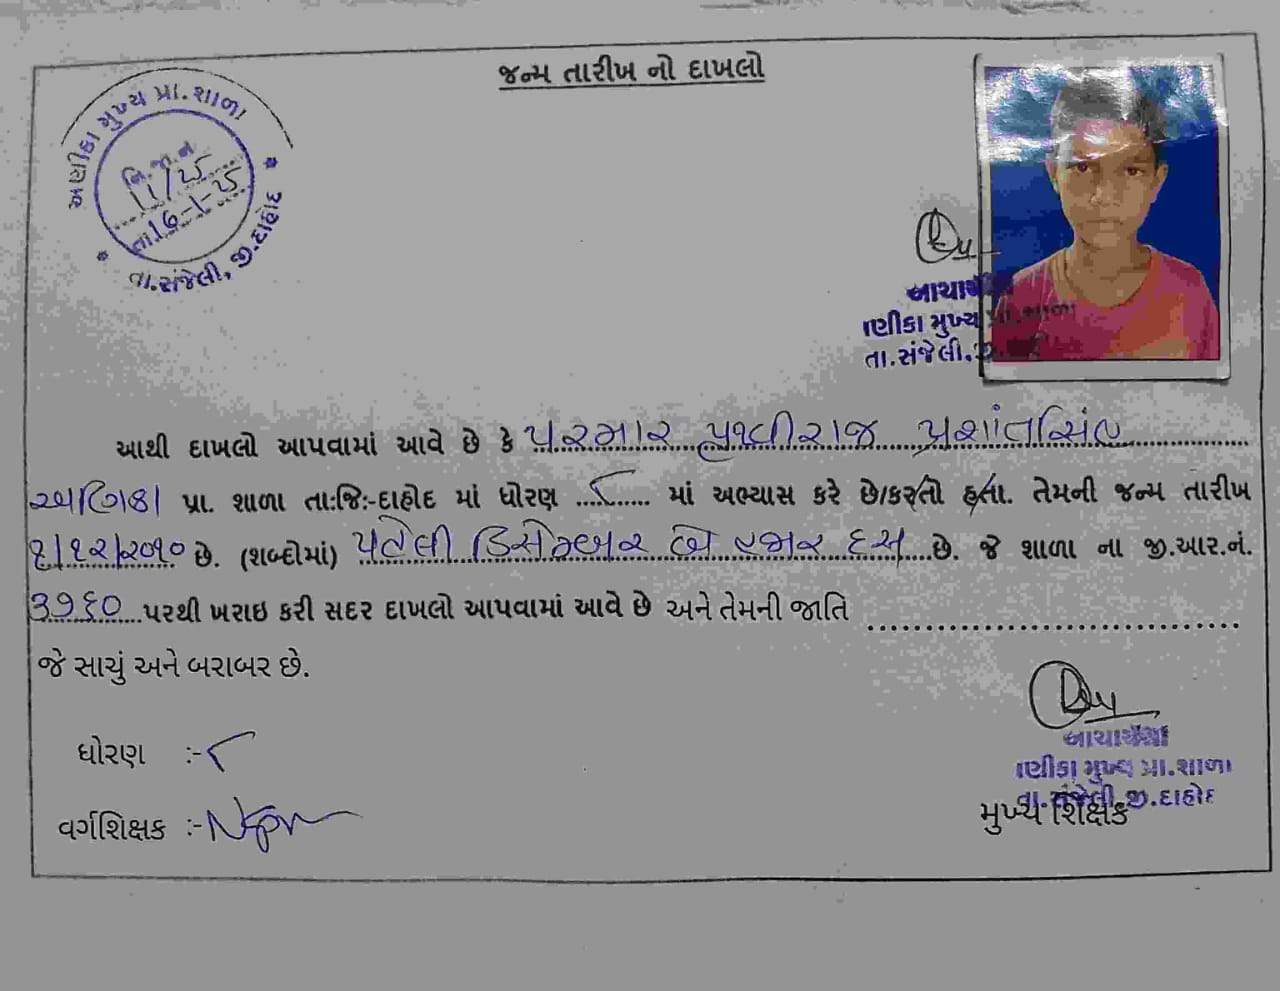 જન્મ તારીખ નો દાખલો
અણીકા મુખ્ય પ્રા.શાળા
નિ.જા.ન
11/25
તા.16-1-25
તા.સંજેલી, જી.દાહોદ
આચાર્ય
ણીકા મુખ્ય પ્રા.શાળા
તા.સંજેલી,
આથી દાખલો આપવામાં આવે છે કે પરમાર પૃથ્વીરાજ પ્રશાંતસિંહ
અણિકા પ્રા. શાળા તા:જિ:-દાહોદ માં ધોરણ ૮ માં અભ્યાસ કરે છે/કરતો હતા. તેમની જન્મ તારીખ
૧/૧૨/૨૦૧૦ છે. (શબ્દોમાં) પહેલી ડિસેમ્બર બે હજાર દસ છે. જે શાળા ના જી.આર.નં.
૩૭૬૦ પરથી ખરાઇ કરી સદર દાખલો આપવામાં આવે છે અને તેમની જાતિ ..............................
જે સાચું અને બરાબર છે.
ધોરણ :- ૮
વર્ગશિક્ષક :-
ણીકા મુખ્ય પ્રા.શાળા
તા.સંજેલી,જી.દાહોદ
મુખ્ય શિક્ષક